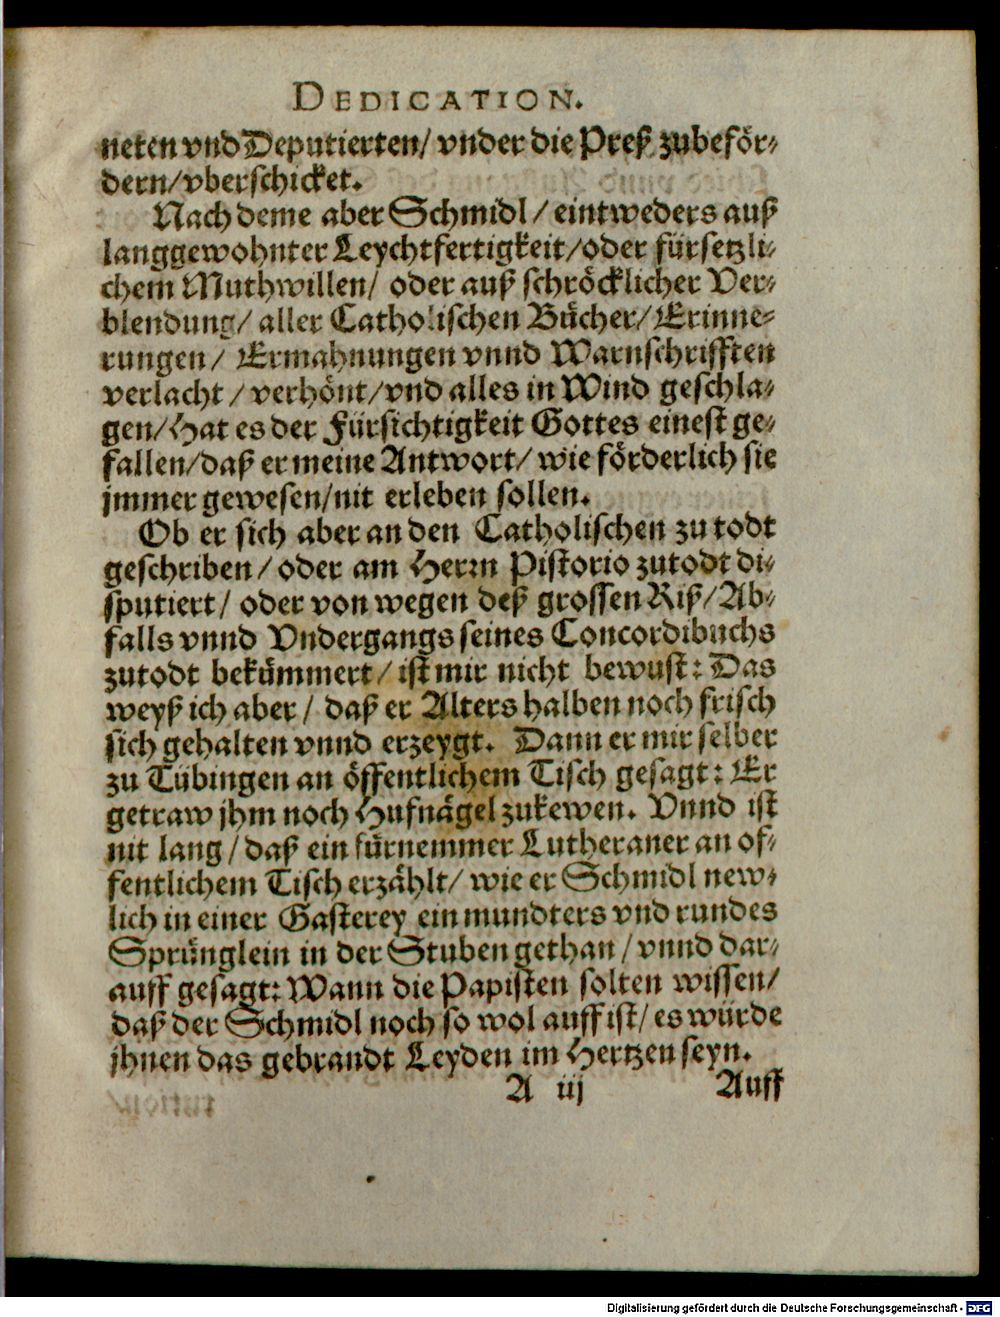 DEDICATION.
neten vnd Deputierten/ vnder die Preß zubeför-
dern/vberschicket.
Nach deme aber Schmidl/ eintweders auß
langgewohnter Leychtfertigkeit/oder fürsetzli-
chem Muthwillen/ oder auß schröcklicher Ver-
blendung/ aller Catholischen Bücher/ Erinne-
rungen/ Ermahnungen vnnd Warnschrifften
verlacht/ verhönt/vnd alles in Wind geschla-
gen/Hat es der Fürsichtigkeit Gottes einest ge-
fallen/daß er meine Antwort/ wie förderlich sie
jmmer gewesen/nit erleben sollen.
Ob er sich aber an den Catholischen zu todt
geschriben/ oder am Herrn Pistorio zutodt di-
sputiert/ oder von wegen deß grossen Riß/Ab-
falls vnnd Vndergangs seines Concordibuchs
zutodt bekümmert/ ist mir nicht bewust: Das
weyß ich aber/ daß er Alters halben noch frisch
sich gehalten vnnd erzeygt. Dann er mir selber
zu Tübingen an öffentlichem Tisch gesagt: Er
getraw jhm noch Hufnägel zukewen. Vnnd ist
nit lang/ daß ein fürnemmer Lutheraner an of-
fentlichem Tisch erzählt/ wie er Schmidl new-
lich in einer Gasterey ein mundters vnd rundes
Sprünglein in der Stuben gethan/ vnnd dar-
auff gesagt: Wann die Papisten solten wissen/
daß der Schmidl noch so wol auff ist/ es würde
jhnen das gebrandt Leyden im Hertzen seyn.
A iij Auff
Digitalisierung gefördert durch die Deutsche Forschungsgemeinschaft - DFG